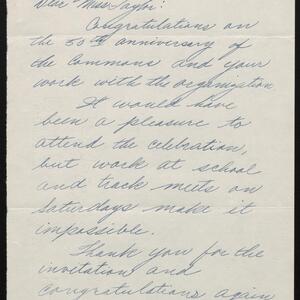 Dear Miss Taylor:
Congratulations on
the 50th anniversary of
the Commons and your
work with the organization
It would have
been a pleasure to
attend the celebration,
but work at school
and track meets on
Saturdays make it
impossible.
Thank you for the
invitation and
congratulations again